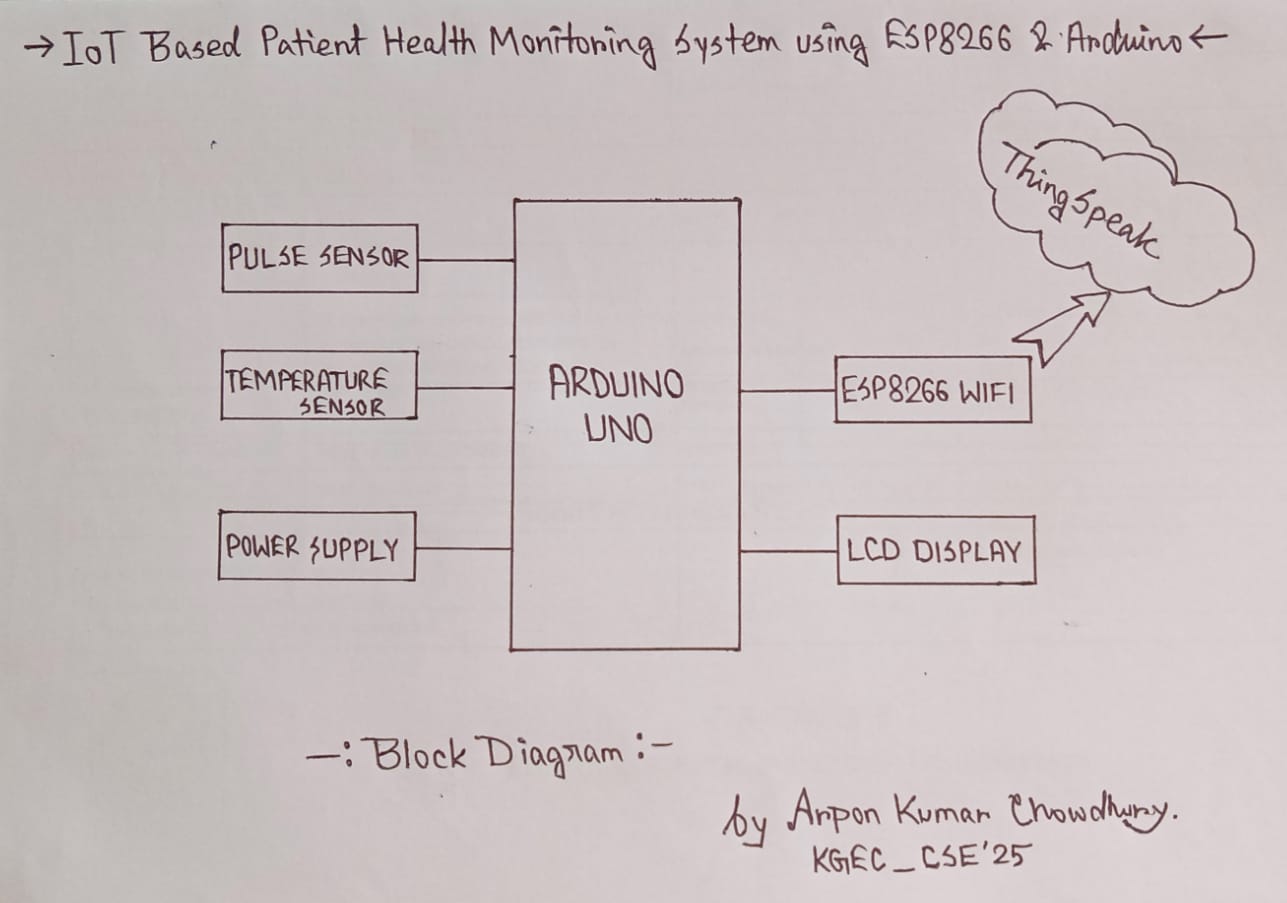 → IoT Based Patient Health Monitoring System using ESP8266 & Arduino ←
ThingSpeak
PULSE SENSOR
TEMPERATURE
SENSOR
ARDUINO
UNO
ESP8266 WIFI
POWER SUPPLY
LCD DISPLAY
—: Block Diagram :—
by Arpon Kumar Chowdhury.
KGEC_CSE'25